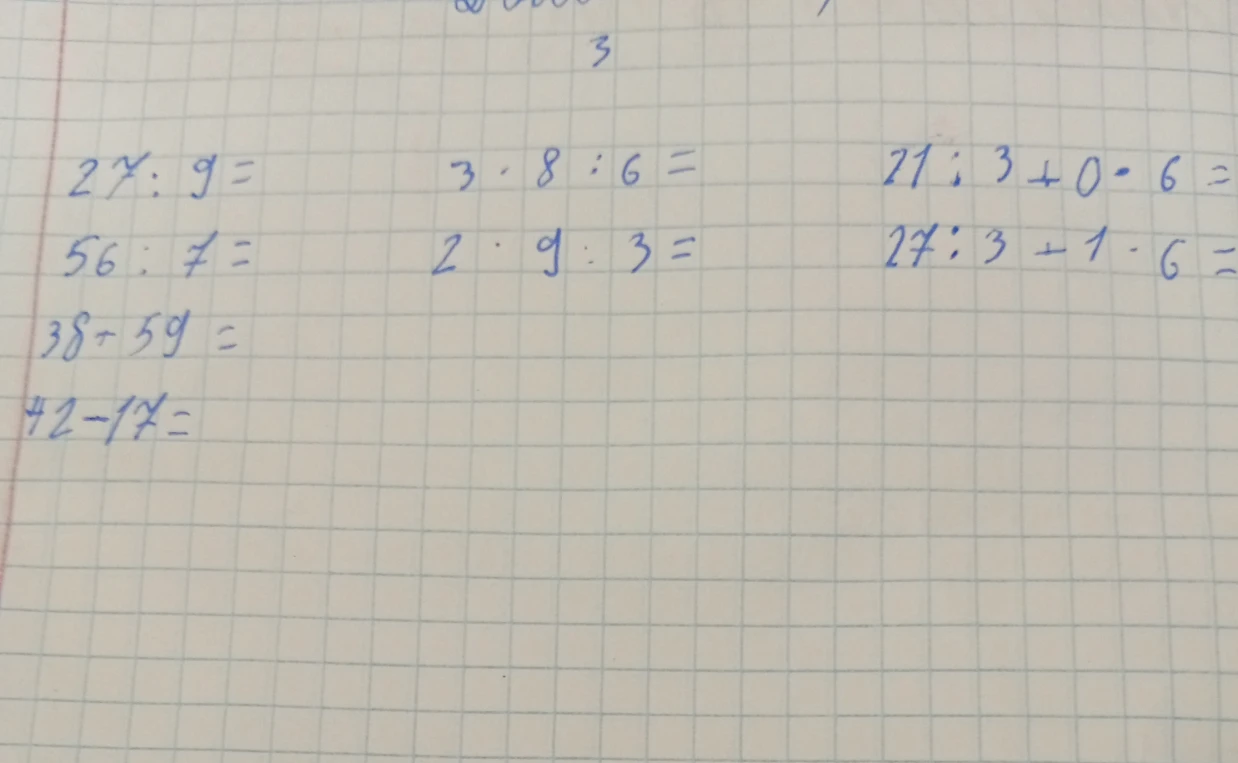 3
27 : 9 = 3 · 8 : 6 = 21 : 3 + 0 · 6 =
56 : 7 = 2 · 9 : 3 = 27 : 3 + 1 · 6 =
38 + 59 =
42 - 17 =